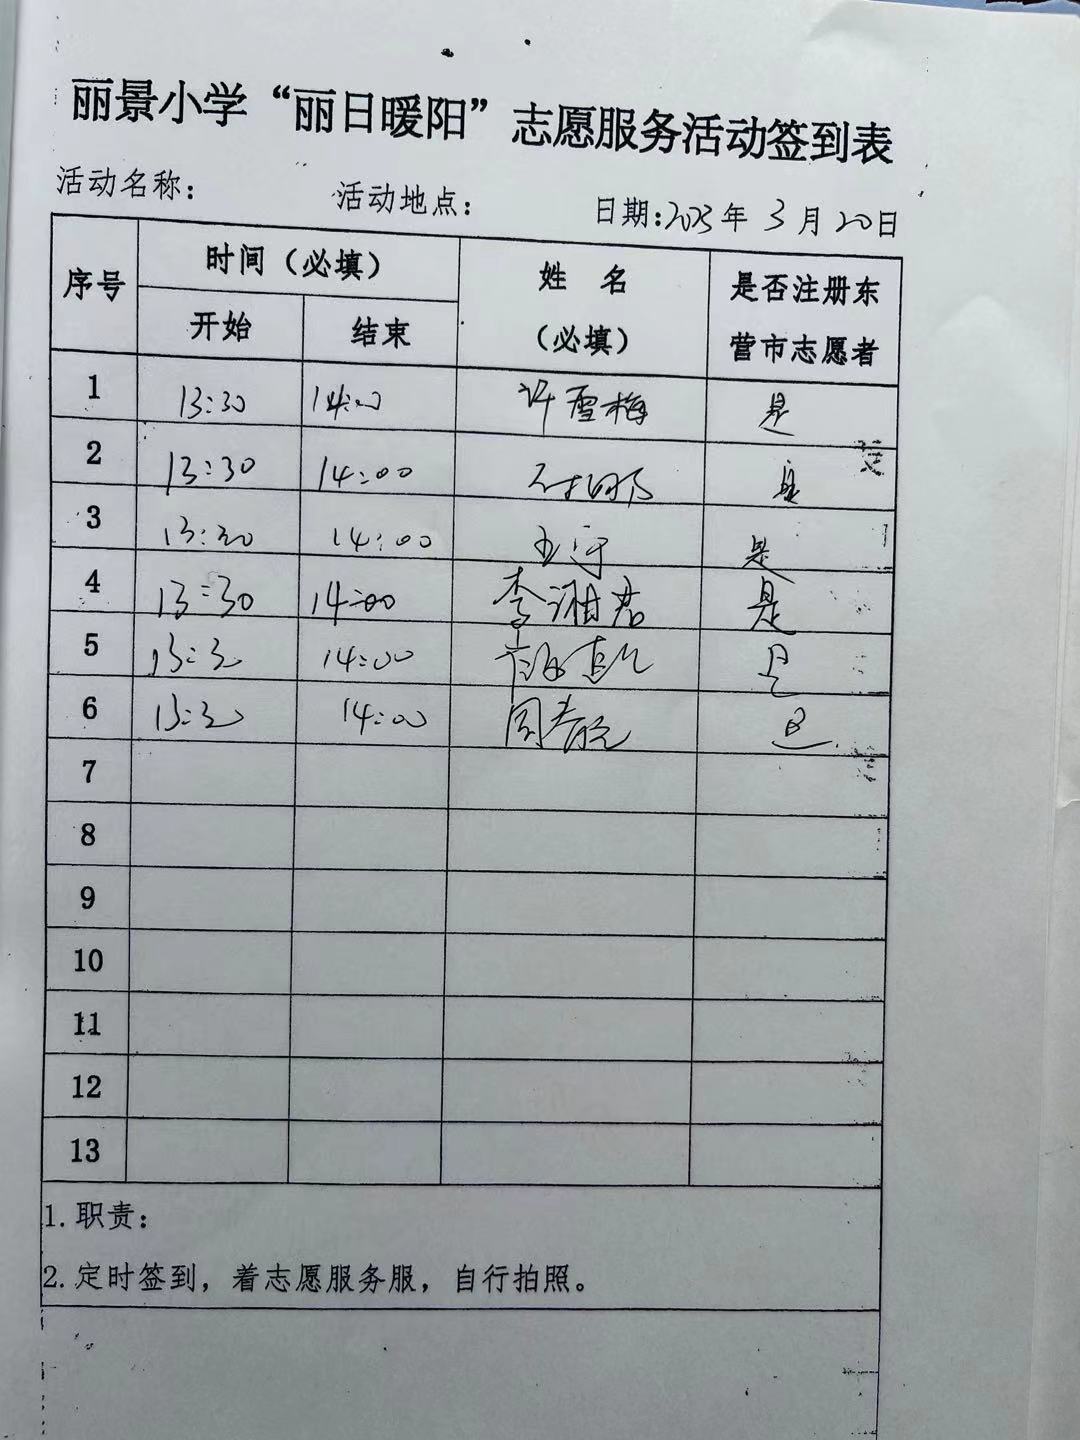 丽景小学“丽日暖阳”志愿服务活动签到表
活动名称： 活动地点： 日期:2023年 3月 20日
序号 时间（必填） 姓 名（必填） 是否注册东营市志愿者
开始 结束
1 13:30 14:00 许雪梅 是
2 13:30 14:00 是
3 13:30 14:00 是
4 13:30 14:00 李湘君 是
5 13:30 14:00 是
6 13:30 14:00 是
7
8
9
10
11
12
13
1. 职责：
2. 定时签到，着志愿服务服，自行拍照。